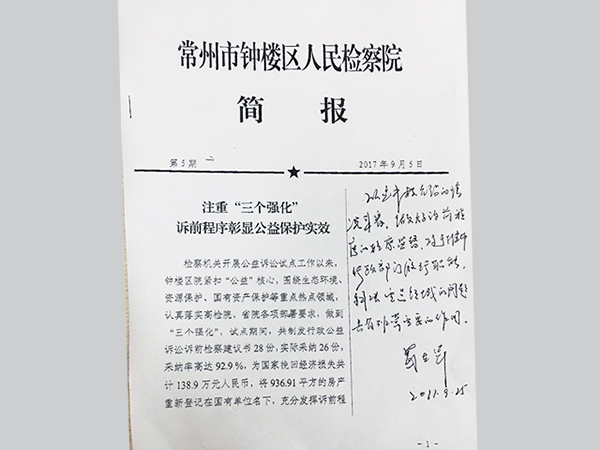 常州市钟楼区人民检察院
简 报
第5期
2017年9月5日
注重“三个强化”
诉前程序彰显公益保护实效
检察机关开展公益诉讼试点工作以来，
钟楼区院紧扣“公益”核心，围绕生态环境、
资源保护、国有资产保护等重点热点领域，
认真落实高检院、省院各项部署要求，做到
“三个强化”，试点期间，共制发行政公益
诉讼诉前检察建议书28份，实际采纳26份，
采纳率高达92.9%，为国家挽回经济损失共
计138.9万元人民币，将936.91平方的房产
重新登记在国有单位名下，充分发挥诉前程
行政部门履行职能
领域的问题
的作用.
- 1 -